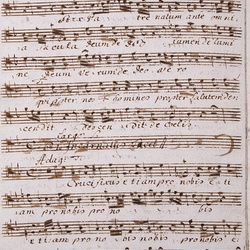 et ex Pa tre natum ante omni
a sæcula deum de deo lumen de lumi
ne deum verum de deo ve ro
qui propter nos homines propter salutem des
cendit descen dit de Cælis
Adag:
Crucifixus etiam pro nobis e ti
am pro nobis pro no bis
e ti am pro no bis nobis pro nobis